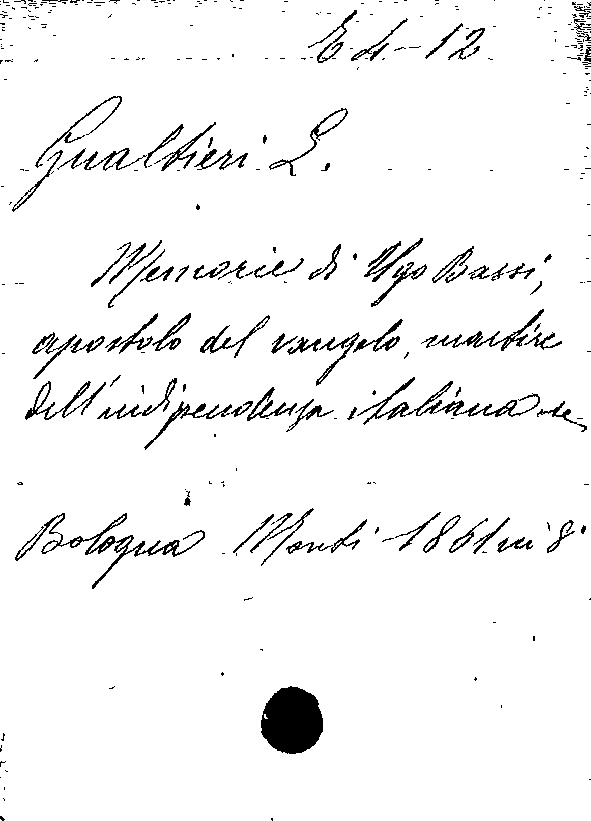 E 4-12
Gualtieri L.
Memorie di Ugo Bassi,
apostolo del vangelo, martire
dell'indipendenza italiana
Bologna Monti 1861 in 8°